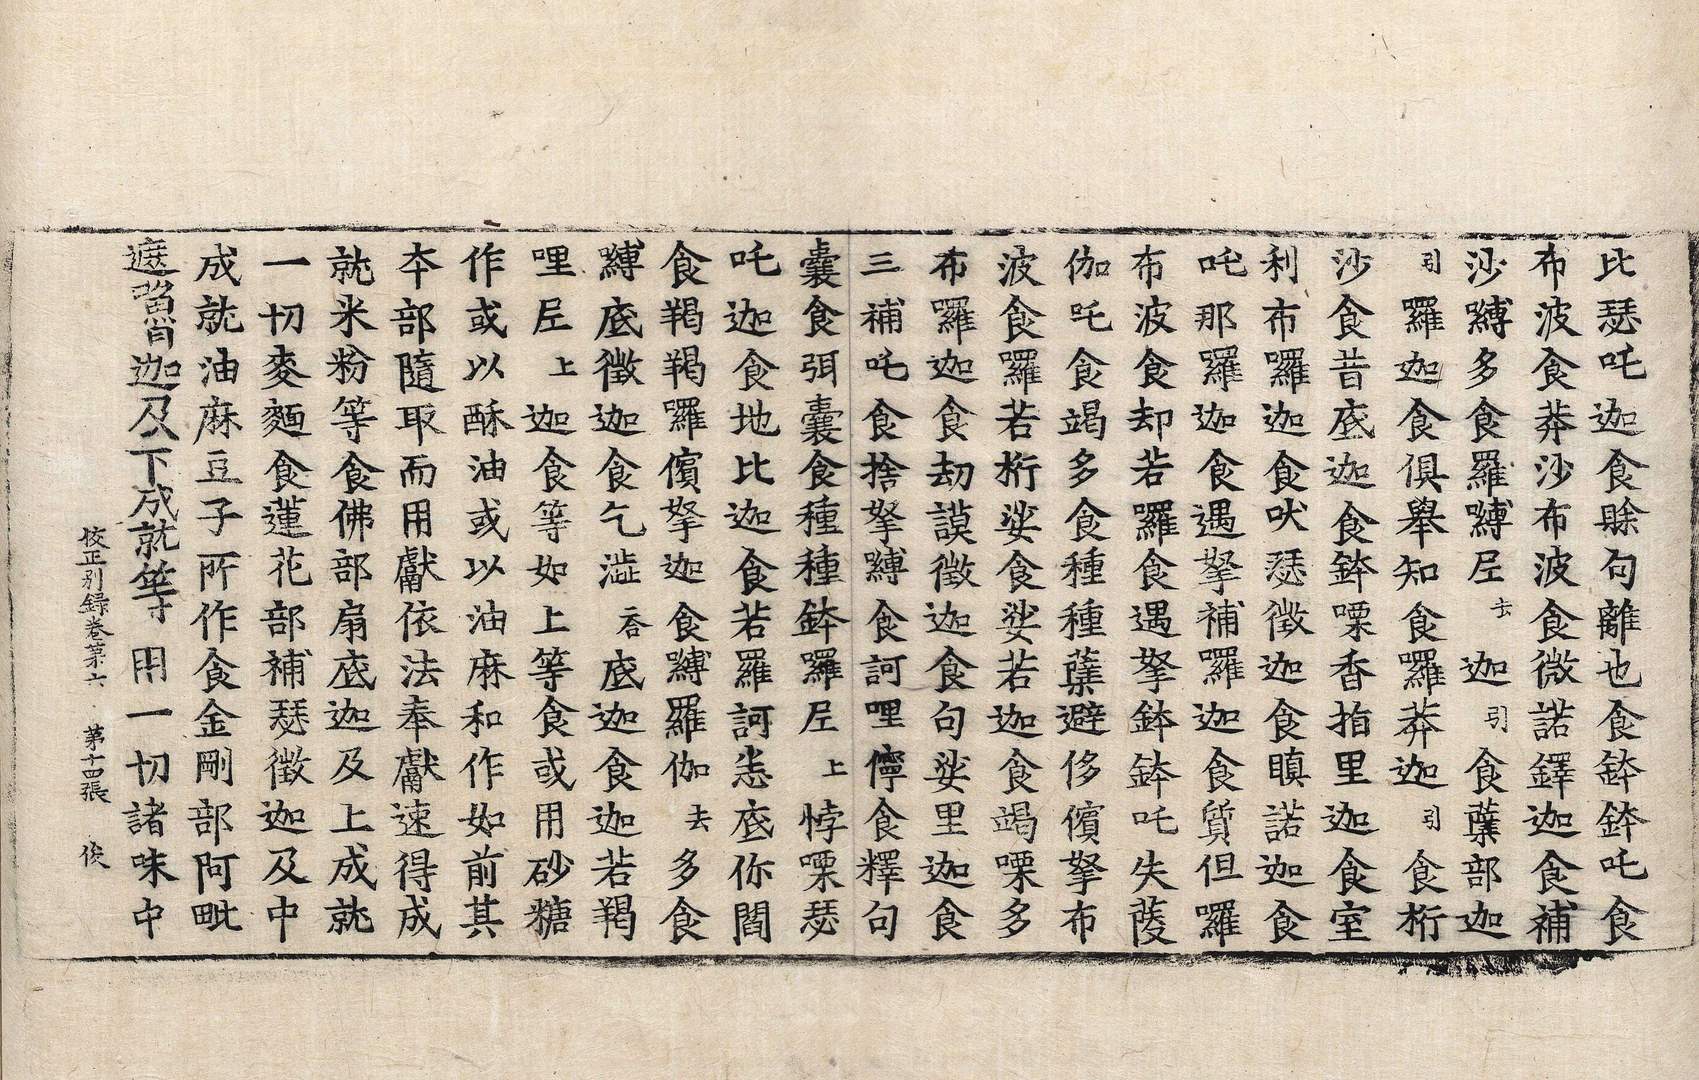 比瑟吒迦食賖句離也食鉢鉢吒食
布波食莽沙布波食微諾鐸迦食補
沙嚩多食羅嚩𡰱去迦引食蘖部迦
引羅迦食俱舉知食囉莽迦引食桁
沙食昔底迦食鉢㗚香指里迦食室
利布囉迦食吠瑟徴迦食瞋諾迦食
吒那囉迦食遇拏補囉迦食質但囉
布波食却若囉食遇拏鉢鉢吒失蔆
伽吒食竭多食種種蘖避侈儐拏布
波食囉若桁娑食娑若迦食竭㗚多
布囉迦食劫謨徴迦食句娑里迦食
三補吒食捨拏嚩食訶哩儜食釋句
囊食弭囊食種種鉢囉𡰱上悖㗚瑟
吒迦食地比迦食若羅訶恙底你閻
食羯羯囉儐拏迦食嚩羅伽去多食
嚩底徴迦食乞澁二合底迦食迦若羯
哩𡰱上迦食等如上等食或用砂糖
作或以酥油或以油麻和作如前其
夲部隨取而用獻依法奉獻速得成
就米粉等食佛部扇底迦及上成就
一切麥麵食蓮花部補瑟徴迦及中
成就油麻豆子所作食金剛部阿毗
遮嚕迦及下成就等用一切諸味中
校正別錄卷第六 第十四張 俊